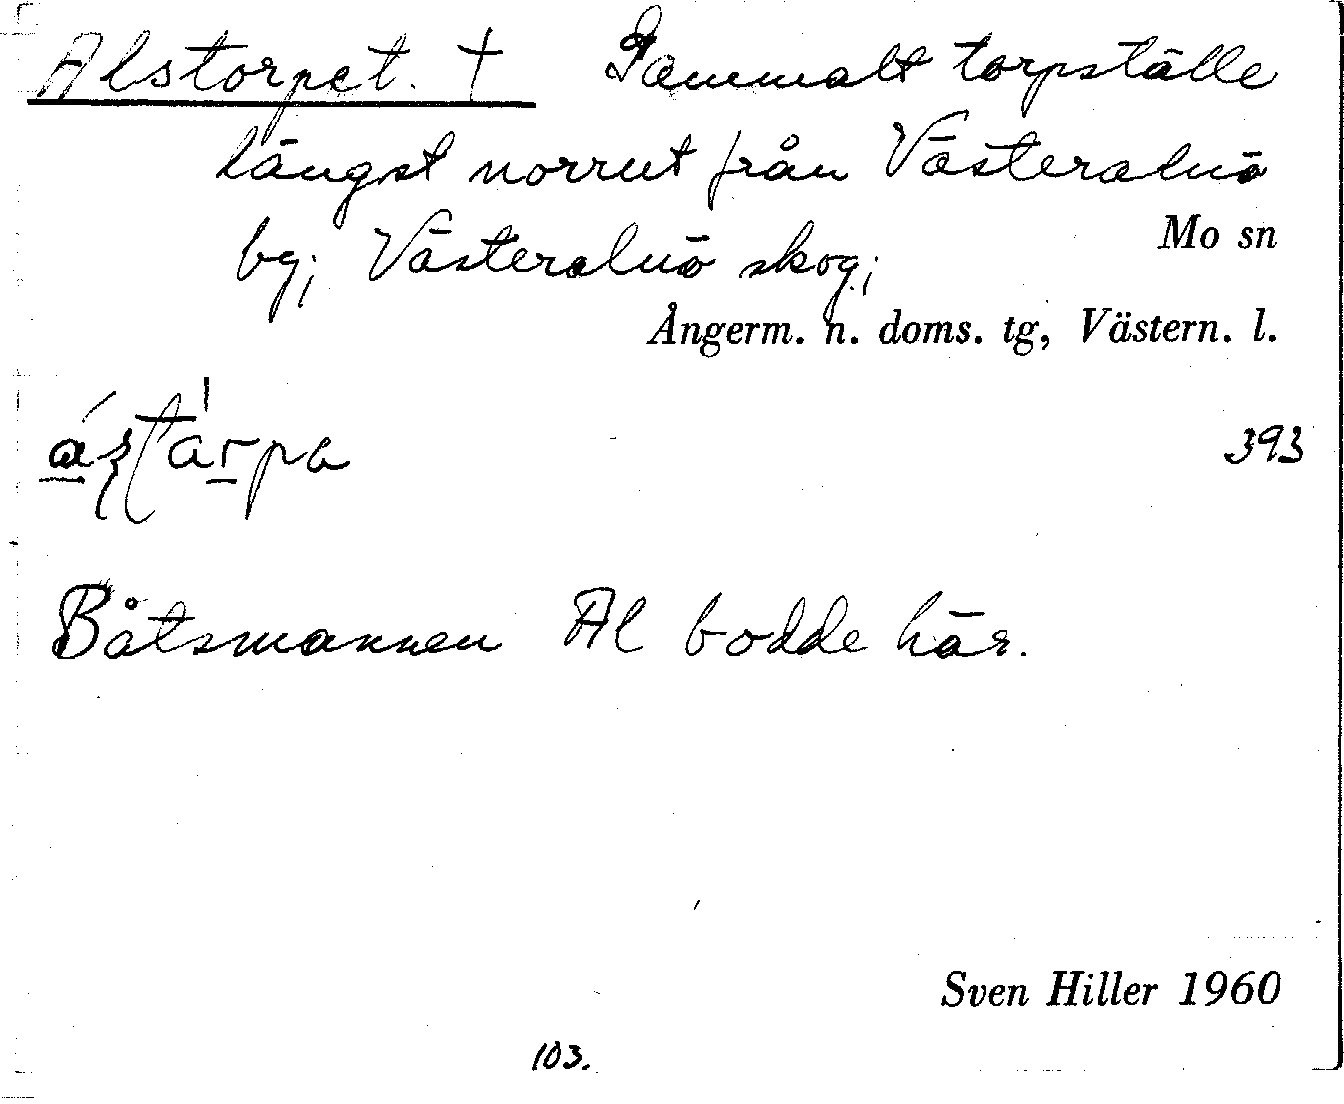 Alstorpet. † Gammalt torpställe
längst norrut från Västeralnö
by; Västeralnö skog;
Mo sn
Ångerm. n. doms. tg, Västern. l.
393
Båtsmannen Al bodde här.
Sven Hiller 1960
103.